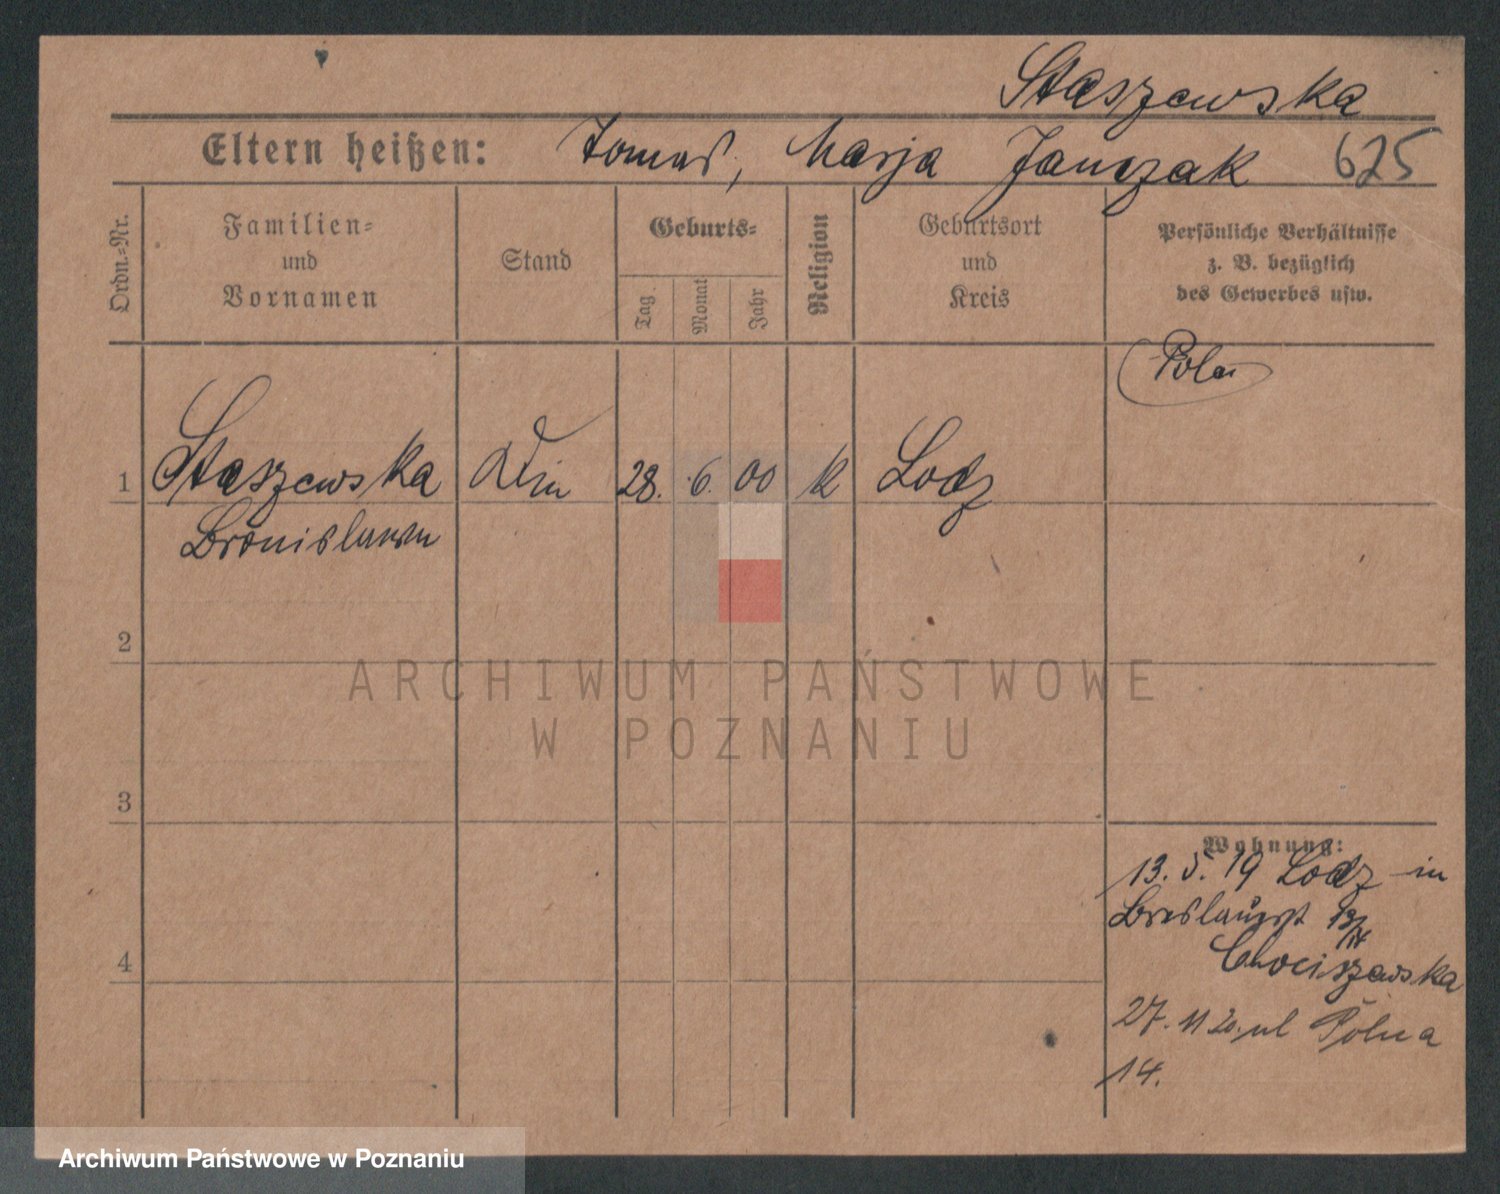 Staszewska
Eltern heißen: Tomas, Marja Janczak 625
Ordn.=Nr.
Familien=
und
Vornamen
Stand
Geburts=
Tag.
Monat
Jahr
Religion
Geburtsort
und
Kreis
Persönliche Verhältnisse
z. B. bezüglich
des Gewerbes usw.
Polen
1 Staszewska 28. 6. 00 k Lodz
Bronislawa
2
3
4
Wohnung:
13. 5. 19 Lodz in
Breslauerst
Chociszewska
27. 11 20. ul Polna
14.
ARCHIWUM PAŃSTWOWE
W POZNANIU
Archiwum Państwowe w Poznaniu